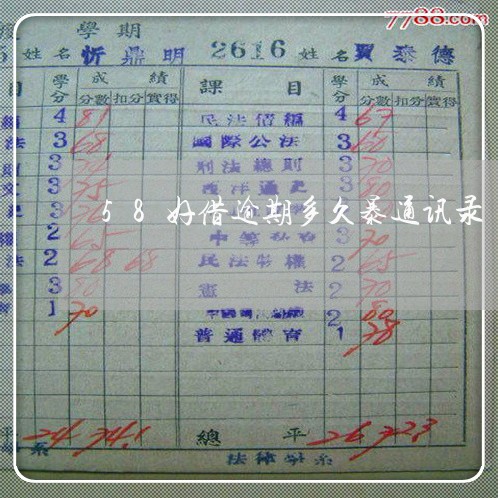 7788.com
學期
姓名 忻鼎明 2616 姓名 賈泰德
目 學分 成績 課目 學分 成績
分數 扣分 實得 分數 扣分 實得
4 81 民法債編 4 67
法 3 68 國際公法 3 60
3 刑法總則 3 70
3 75 西洋通史 3 80
58好借逾期多久暴通讯录
2 65 3 70
法 2 68 68 民法物權 2 65
3 80 憲法 2 70
1 70 2 80
普通體育 1 78
平 24 74.1 總平 26 72.3
系 法律學系